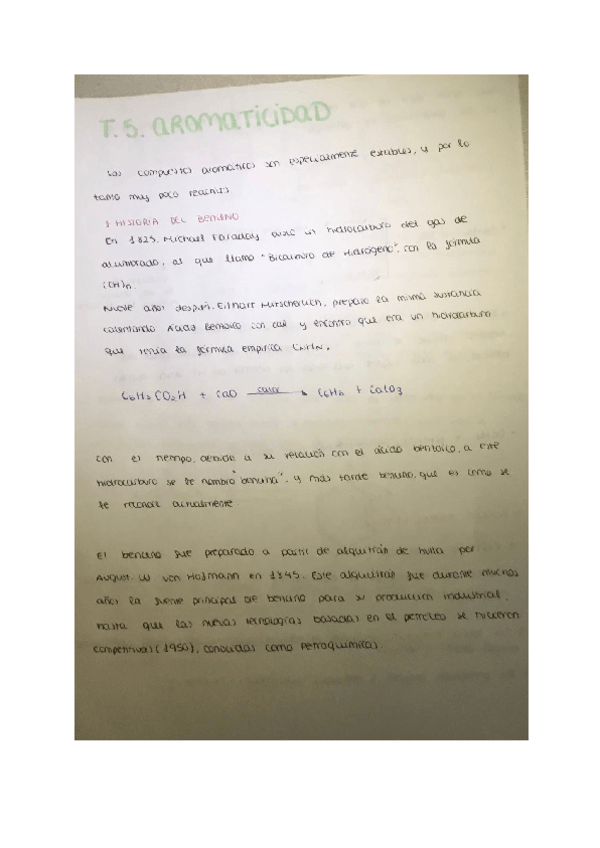 T.5. AROMATICIDAD
Los compuestos aromáticos son especialmente estables, y por lo
tanto muy poco reactivos
1 HISTORIA DEL BENCENO
En 1825, Michael Faraday, aisló un hidrocarburo del gas de
alumbrado, al que llamó "Bicarburo de Hidrógeno", con la fórmula
(CH)n.
Nueve años después, Eilhart Mitscherlich, preparó la misma sustancia
calentando Ácido Benzoico con cal y encontró que era un hidrocarburo
que tenía la fórmula empírica CnHn.
C6H5CO2H + CaO calor → C6H6 + CaCO3
Con el tiempo, debido a su relación con el ácido benzoico, a este
hidrocarburo se le nombró "bencina", y más tarde benceno, que es como se
le conoce actualmente
El benceno fue preparado a partir de alquitrán de hulla por
August. W von Hofmann en 1845. Este alquitrán fue durante muchos
años la fuente principal de benceno para su producción industrial.
hasta que las nuevas tecnologías basadas en el petróleo se hicieron
competitivas (1950), conocidas como Petroquímicas.